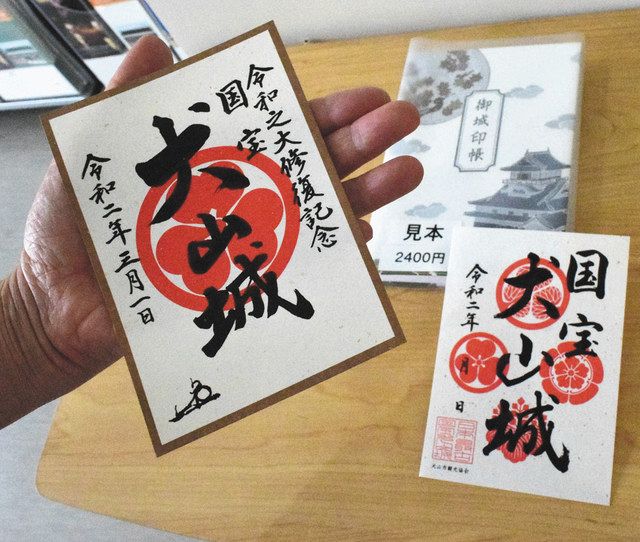 令和之大修復記念
国宝
犬山城
令和二年三月一日
御城印帳
見本
2400円
国宝
犬山城
令和二年 月 日
犬山市観光協会